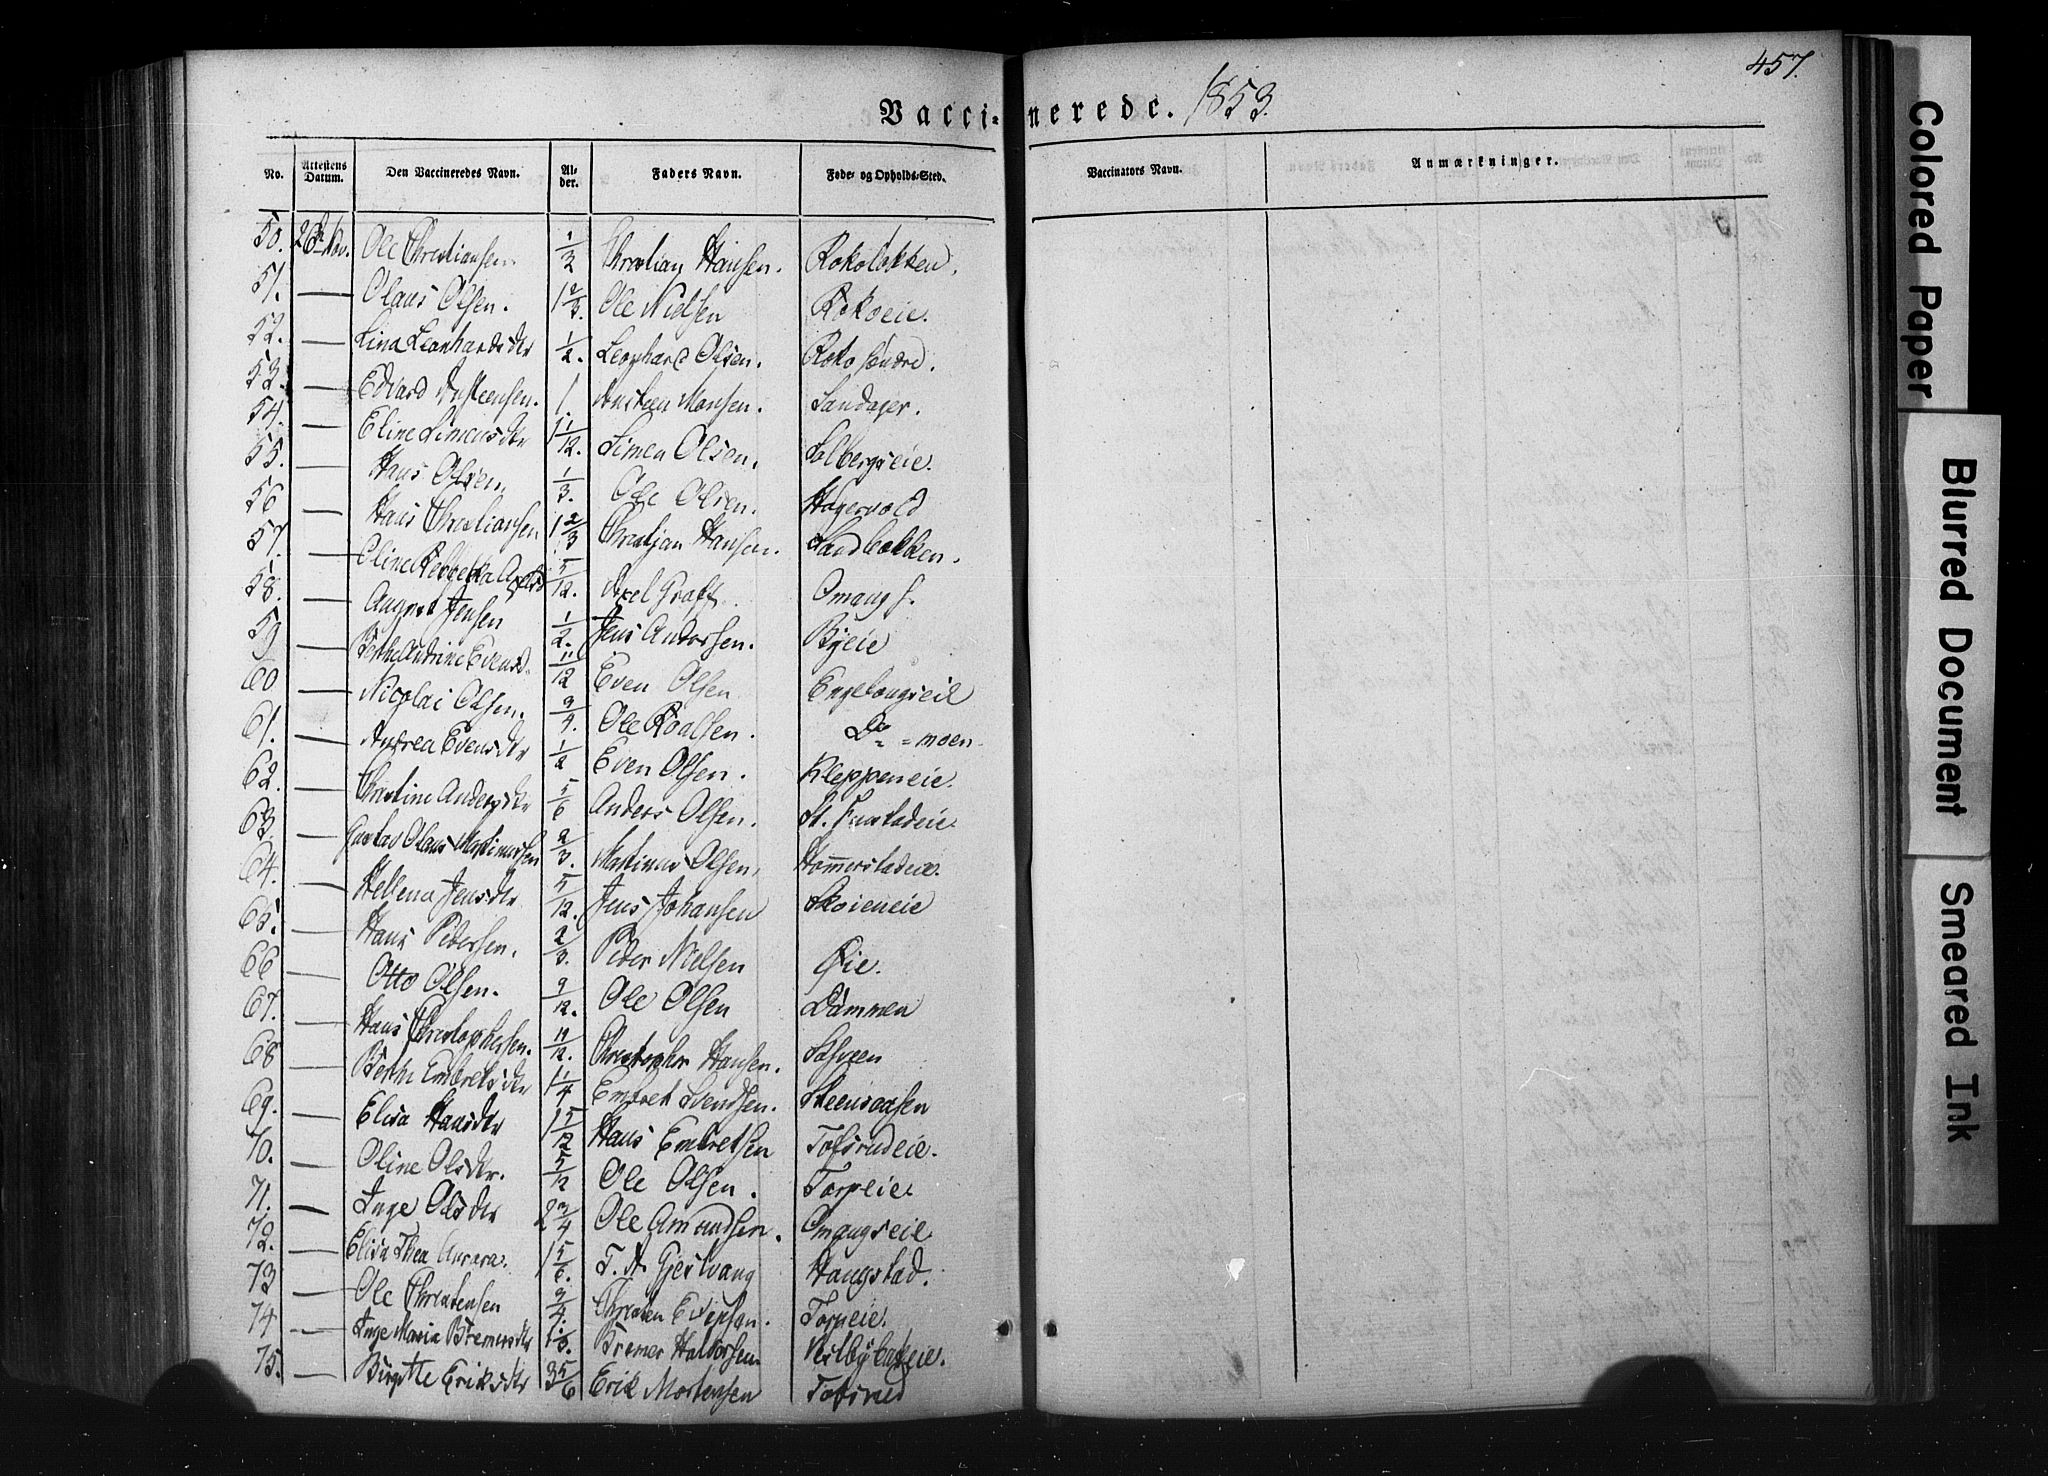 457.
Vaccinerede. 1853.
No. Attestens Datum. Den Vaccineredes Navn. Alder. Faders Navn. Føde- og Opholds-Sted. Vaccinators Navn. Anmærkninger.
50. 26 Nov. Ole Christiansen. 1/2 Christian Hansen. Rokoløkken.
51. — Olaus Olsen. 1 2/3. Ole Nielsen Rokoeie.
52. — Lina Leonhardsdtr 1/2. Leonhard Olsen. Roko søndre.
53. — Edvard Austeensen. 1. Austeen Monsen. Sandager.
54. — Eline Simensdtr 1 1/12. Simen Olsen. Solbergseie.
55. — Hans Olsen. 1/3. Ole Olsen. Hagervold
56 — Hans Christiansen 1 2/3 Christian Hansen. Sandbækken.
57. — Oline Rebekka Axelsd 5/12. Axel Graff. Omang s.
58. — August Jensen 1/2. Jens Andersen. Byeie
59 — Berthe Andrine Evensd. 11/12 Even Olsen Engelaugseie
60 — Nicolai Olsen. 3/4. Ole Roalsen. Do = moen.
61. — Andrea Evensdtr 1/2 Even Olsen. Kleppeneie.
62. — Christine Andersdtr 5/6 Anders Olsen. St. Finstadeie.
63. — Gustav Olaus Martinussen 2/3. Martinus Olsen. Hommerstadeie.
64. — Hellena Jensdtr 5/12. Jens Johansen Skøieneie
65. — Hans Pedersen. 2/3. Peder Nielsen Øie.
66 — Otto Olsen. 9/12. Ole Olsen Dammen
67. — Hans Christophersen. 11/12. Christopher Hansen.
68 — Berthe Embretsdtr 1 1/4 Embret Svendsen. Steensaasen
69. — Elisa Hansdtr 1 5/12 Hans Embretsen Tofsrudeie.
70. — Oline Olsdtr. 5/12 Ole Olsen. Torpeie.
71. — Inge Olsdtr 2 3/4 Ole Amundsen. Omangseie
72. — Elisa Thea Aurora. 1 5/6. T. A. Gjestvang Haugstad.
73 — Ole Christensen 3/4. Christen Torpeie.
74 — Inge Maria Bremersdtr 1 1/3. Bremer Halvorsen.
75. — Birgitte Eriksdtr 3 5/6 Erik Mortensen Tofsrud
Colored Paper
Blurred Document
Smeared Ink